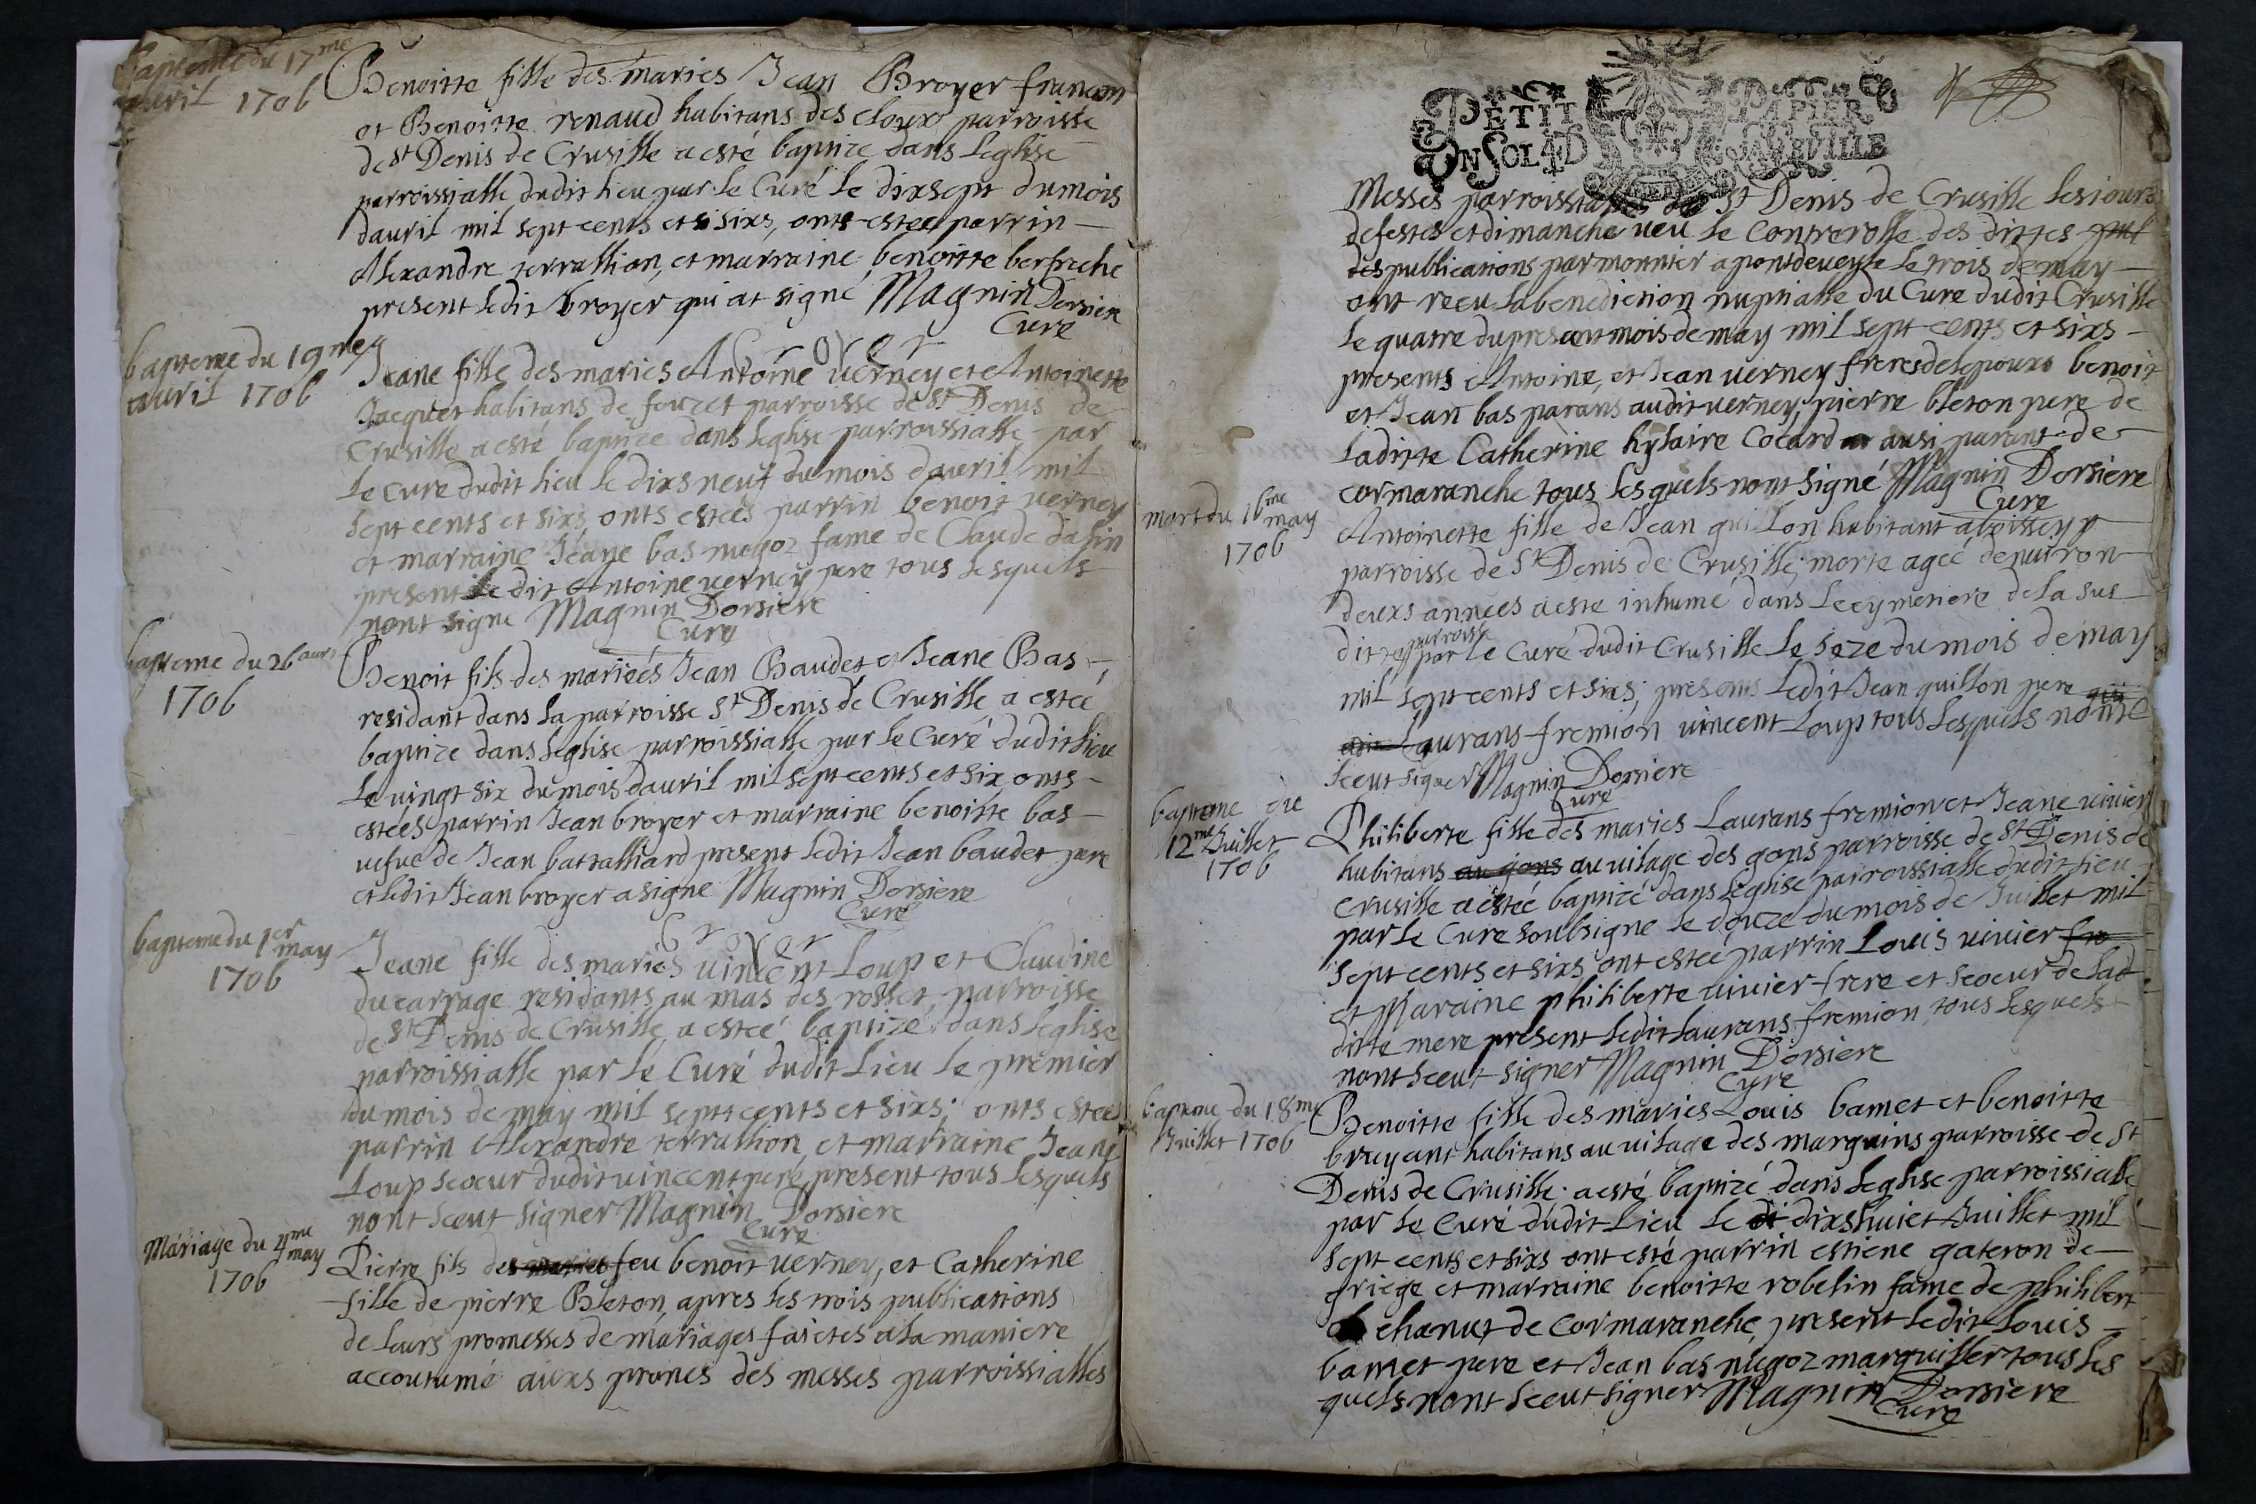 Bapteme du 17me
avril 1706
Benoitte fille des maries Jean Broyer francon
et Benoitte renaud habitans des cloux parroisse
de St Denis de Crusille a esté baptize dans leglise
parroissialle dudit lieu par le Curé le dixsept du mois
dauril mil sept cents et sixs, onts estee parrin
Alexandre terrallion, et marraine benoitte berfreche
present ledit broyer qui at signé Magnin Dorsiere
Curé
broyer
bapteme du 19me
auril 1706
Jeane fille des maries Antoine verney et Antoinette
Jacquet habitans de fouzet parroisse de St Denis de
Crusille a esté baptizee dans leglise parroissialle par
le Cure dudit lieu le dixs neuf du mois dauril mil
sept cents et sixs onts estees parrin benoit verney
et marraine Jeane bas nugoz fame de Claude dafin
present le dit Antoine verney pere tous lesquels
nont signe Magnin Dorsiere
Curé
bapteme du 26 auril
1706
Benoit fils des mariées Jean Baudet et Jeane Bas
residant dans la parroisse St Denis de Crusille a estée
baptize dans leglise parroissialle par le Curé dudit lieu
le vingt six du mois dauril mil sept cents et six onts
estées parrin Jean broyer et marraine benoitte bas
vefve de Jean battalliard present ledit Jean baudet pere
et ledit Jean broyer a signe Magnin Dorsiere
Curé
broyer
bapteme du 1er
may
1706
Jeane fille des mariés vincent Loup et Claudine
ducarrage residants au mas des rosset parroisse
de St Denis de Crusille a esteé baptizé dans leglise
parroissialle par le Curé dudit Lieu le premier
du mois de may mil septt cents et sixs; onts estees
parrin Alexandre terrallion et marraine Jeane
Loup scoeur dudit vincent pere, present tous lesquels
nont sceut signer Magnin Dorsiere
Curé
Mariage du 4me
may
1706
Pierre fils des maries feu benoit verney, et Catherine
fille de pierre Bleton apres les trois publications
de leurs promesses de mariages faictes a la maniere
accoutumé auxs prones des messes parroissialles
PETIT PAPIER
UN SOL 4 D LA FEUILLE
Messes parroissialles de St Denis de Crusille les iours
de festes et dimanche veu le Controrolle des dittes
des publications par monnier a pontdeveyle le trois de may
ont receu la benediction nuptialle du Cure dudit Crusille
le quatre du present mois de may mil sept cents et sixs
presents Antoine, et Jean verney freres de lepouxs benoit
et Jean bas parans audit verney, pierre bleton pere de
laditte Catherine hylaire Cocard ausi parent de
cormaranche tous lesquels nont signé Magnin Dorsiere
Cure
mort du 16me
may
1706
Antoinette fille de Jean guillon habitant a boissey
parroisse de St Denis de Crusille; morte ageé denviron
deuxs années a este inhumé dans le cymetiere de la sus
ditte parroisse par le Curé dudit Crusille le seze du mois de may
mil sept cents et sixs; presents ledit Jean guillon pere qui
Laurans fremion vincent Loup tous lesquels nont
sceut signer Magnin Dorsiere
Curé
bapteme du
12me Juillet
1706
Philiberte fille des maries Laurans fremion et Jeane vivier
habitans au gons au vilage des gons parroisse de St Denis de
Crusille a esteé baptizé dans leglise parroissialle dudit lieu
par le Cure soubsigne le douze du mois de Juillet mil
sept cents et sixs ont esteé parrin Louis vivier fre
et Maraine philiberte vivier frere et scoeur de lad
ditte mere present ledit Laurans fremion tous lesquels
nont sceut signer Magnin Dorsiere
Cure
bapteme du 18me
Juillet 1706
Benoitte fille des maries Louis bamet et benoitte
bruyant habitans au vilage des marguins parroisse de St
Denis de Crusille a esté baptizé dans leglise parroissialle
par le Curé dudit Lieu le di dixshuict Juillet mil
sept cents et sixs ont esté parrin estiene gateron de
griege et marraine benoitte robelin fame de philibert
chanut de Cormaranche, present ledit Louis
bamet pere et Jean bas nugoz marguillier tous les
quels nont sceut signer Magnin Dorsiere
Cure